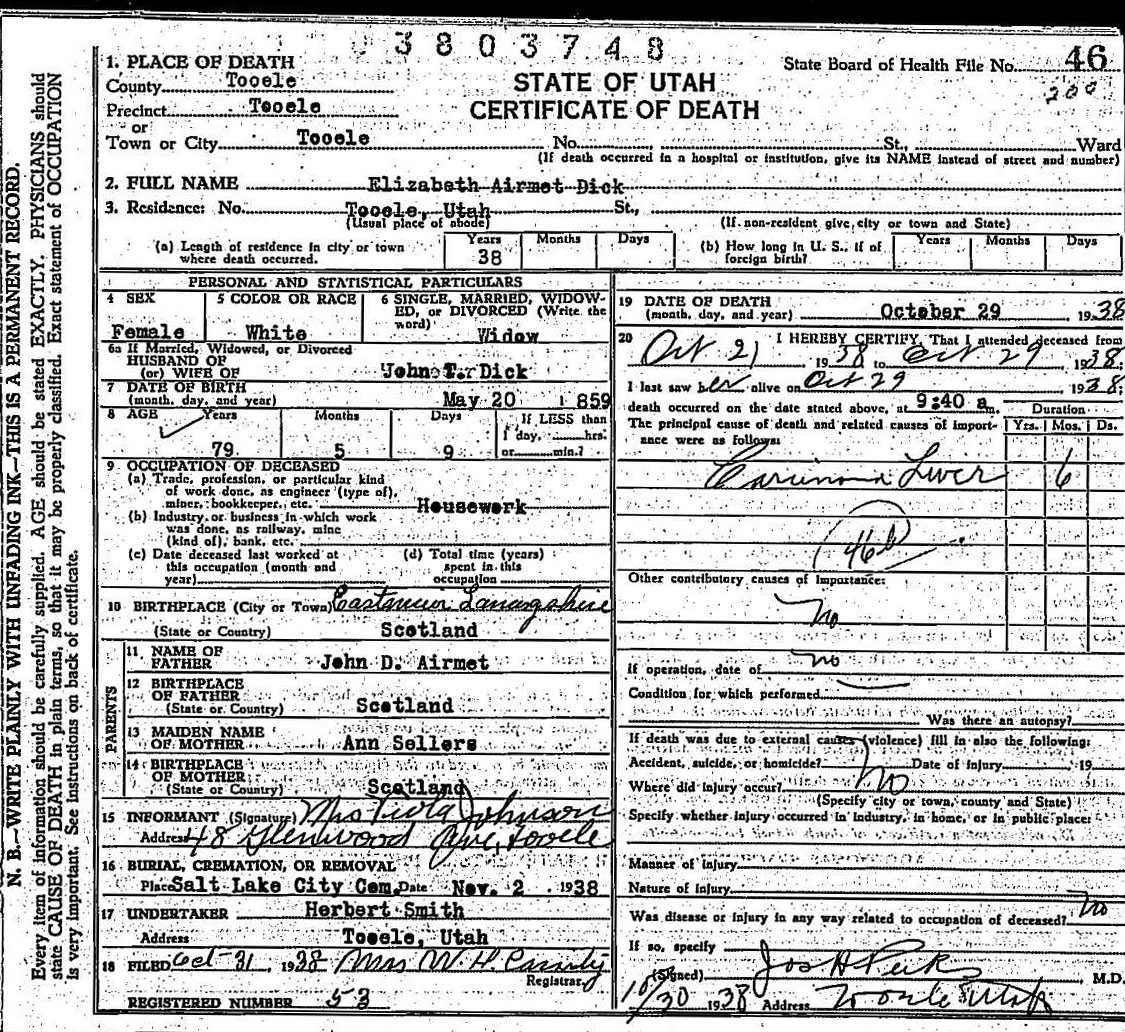 3803748
1. PLACE OF DEATH
County Tooele
Precinct Tooele
or
Town or City Tooele No. St., Ward
(If death occurred in a hospital or institution, give its NAME instead of street and number)
State Board of Health File No. 46
200
STATE OF UTAH
CERTIFICATE OF DEATH
2. FULL NAME Elizabeth Airmet Dick
3. Residence: No. Tooele, Utah St.,
(Usual place of abode) (If non-resident give city or town and State)
(a) Length of residence in city or town where death occurred. Years 38 Months Days
(b) How long in U. S., if of foreign birth? Years Months Days
PERSONAL AND STATISTICAL PARTICULARS
4 SEX Female
5 COLOR OR RACE White
6 SINGLE, MARRIED, WIDOWED, or DIVORCED (Write the word) Widow
6a If Married, Widowed, or Divorced
HUSBAND OF
(or) WIFE OF John T. Dick
7 DATE OF BIRTH
(month, day, and year) May 20 1859
8 AGE Years Months Days If LESS than
79 5 9 1 day, hrs.
or min.?
9 OCCUPATION OF DECEASED
(a) Trade, profession, or particular kind
of work done, as engineer (type of),
miner, bookkeeper, etc. Housework
(b) Industry or business in which work
was done, as railway, mine
(kind of), bank, etc.
(c) Date deceased last worked at
this occupation (month and
year)
(d) Total time (years)
spent in this
occupation
10 BIRTHPLACE (City or Town)
(State or Country) Scotland
PARENTS
11. NAME OF
FATHER John D. Airmet
12 BIRTHPLACE
OF FATHER
(State or Country) Scotland
13 MAIDEN NAME
OF MOTHER Ann Sellers
14 BIRTHPLACE
OF MOTHER
(State or Country) Scotland
15 INFORMANT (Signature) Mrs Viola Johnson
Address 48 Glenwood Ave, Tooele
16 BURIAL, CREMATION, OR REMOVAL
Place Salt Lake City Cem. Date Nov. 2 1938
17 UNDERTAKER Herbert Smith
Address Tooele, Utah
18 FILED Oct 31, 1938 Mrs W. H. Cassity
Registrar.
REGISTERED NUMBER 53
19 DATE OF DEATH
(month, day, and year) October 29 1938
20 I HEREBY CERTIFY, That I attended deceased from
Oct 21 1938 to Oct 29 1938:
I last saw her alive on Oct 29 1938;
death occurred on the date stated above, at 9:40 a m. Duration
The principal cause of death and related causes of importance were as follows: Yrs. Mos. Ds.
Carcinoma Liver 6
46b
Other contributory causes of importance:
No
If operation, date of no
Condition for which performed
Was there an autopsy?
If death was due to external causes (violence) fill in also the following:
Accident, suicide, or homicide? Date of injury , 19
Where did injury occur? No
(Specify city or town, county and State)
Specify whether injury occurred in industry, in home, or in public place:
Manner of injury
Nature of injury
Was disease or injury in any way related to occupation of deceased? No
If so, specify
(Signed) Jos H Peck M.D.
10/30 1938 Address Tooele Utah
N. B.—WRITE PLAINLY WITH UNFADING INK—THIS IS A PERMANENT RECORD.
Every item of information should be carefully supplied. AGE should be stated EXACTLY. PHYSICIANS should
state CAUSE OF DEATH in plain terms, so that it may be properly classified. Exact statement of OCCUPATION
is very important. See instructions on back of certificate.